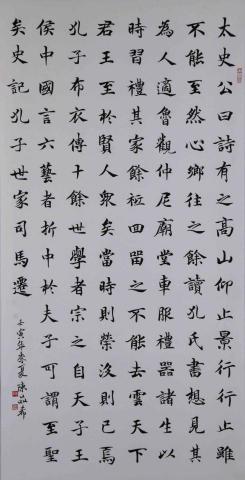 太史公曰詩有之高山仰止景行行止雖
不能至然心鄉往之餘讀孔氏書想見其
為人適魯觀仲尼廟堂車服禮器諸生以
時習禮其家餘祗回留之不能去雲天下
君王至於賢人眾矣當時則榮沒則已焉
孔子布衣傳十餘世學者宗之自天子王
侯中國言六藝者折中於夫子可謂至聖
矣史記孔子世家司馬遷
壬寅年季夏